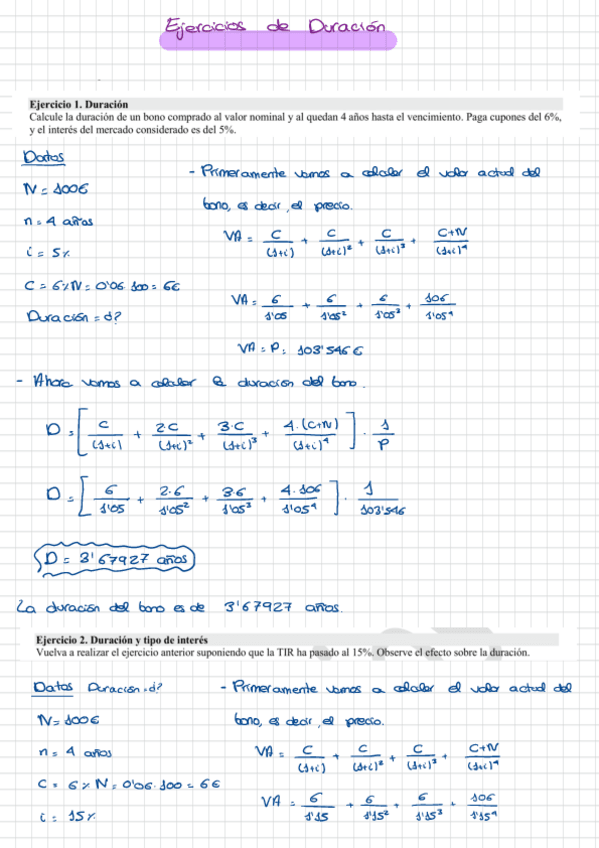 Ejercicios de Duración
Ejercicio 1. Duración
Calcule la duración de un bono comprado al valor nominal y al quedan 4 años hasta el vencimiento. Paga cupones del 6%,
y el interés del mercado considerado es del 5%.
Datos
- Primeramente vamos a calcular el valor actual del
N = 100€
bono, es decir, el precio.
n = 4 años
VA = C/(1+i) + C/(1+i)² + C/(1+i)³ + C+N/(1+i)⁴
i = 5%
C = 6%N = 0'06·100 = 6€
VA = 6/1'05 + 6/1'05² + 6/1'05³ + 106/1'05⁴
Duración = d?
VA = P = 103'546€
- Ahora vamos a calcular la duración del bono.
D = [C/(1+i) + 2·C/(1+i)² + 3·C/(1+i)³ + 4·(C+N)/(1+i)⁴] · 1/P
D = [6/1'05 + 2·6/1'05² + 3·6/1'05³ + 4·106/1'05⁴] · 1/103'546
D = 3'67927 años
La duración del bono es de 3'67927 años.
Ejercicio 2. Duración y tipo de interés
Vuelva a realizar el ejercicio anterior suponiendo que la TIR ha pasado al 15%. Observe el efecto sobre la duración.
Datos Duración = d?
- Primeramente vamos a calcular el valor actual del
N = 100€
bono, es decir, el precio.
n = 4 años
VA = C/(1+i) + C/(1+i)² + C/(1+i)³ + C+N/(1+i)⁴
C = 6%N = 0'06·100 = 6€
VA = 6/1'15 + 6/1'15² + 6/1'15³ + 106/1'15⁴
i = 15%